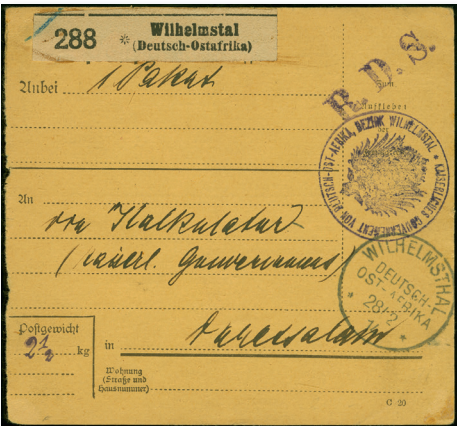 288 * Wilhelmstal
(Deutsch-Ostafrika)
R. D. S.
Anbei 1 Paket
zum
Aufkleben
der
KAISERLICHES GOUVERNEMENT VON DEUTSCH-OST-AFRIKA, BEZIRK WILHELMSTAL *
An
die Kalkulatur
(Kaiserl. Gouvernement)
WILHELMSTHAL
DEUTSCH-
OST-AFRIKA
* 28/2 *
Postgewicht
2 1/2 kg
in Daressalam
Wohnung
(Straße und
Hausnummer)
C 20